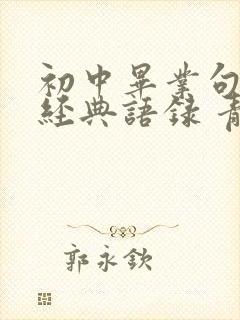 初中畢業句
經典語錄
郭永欽